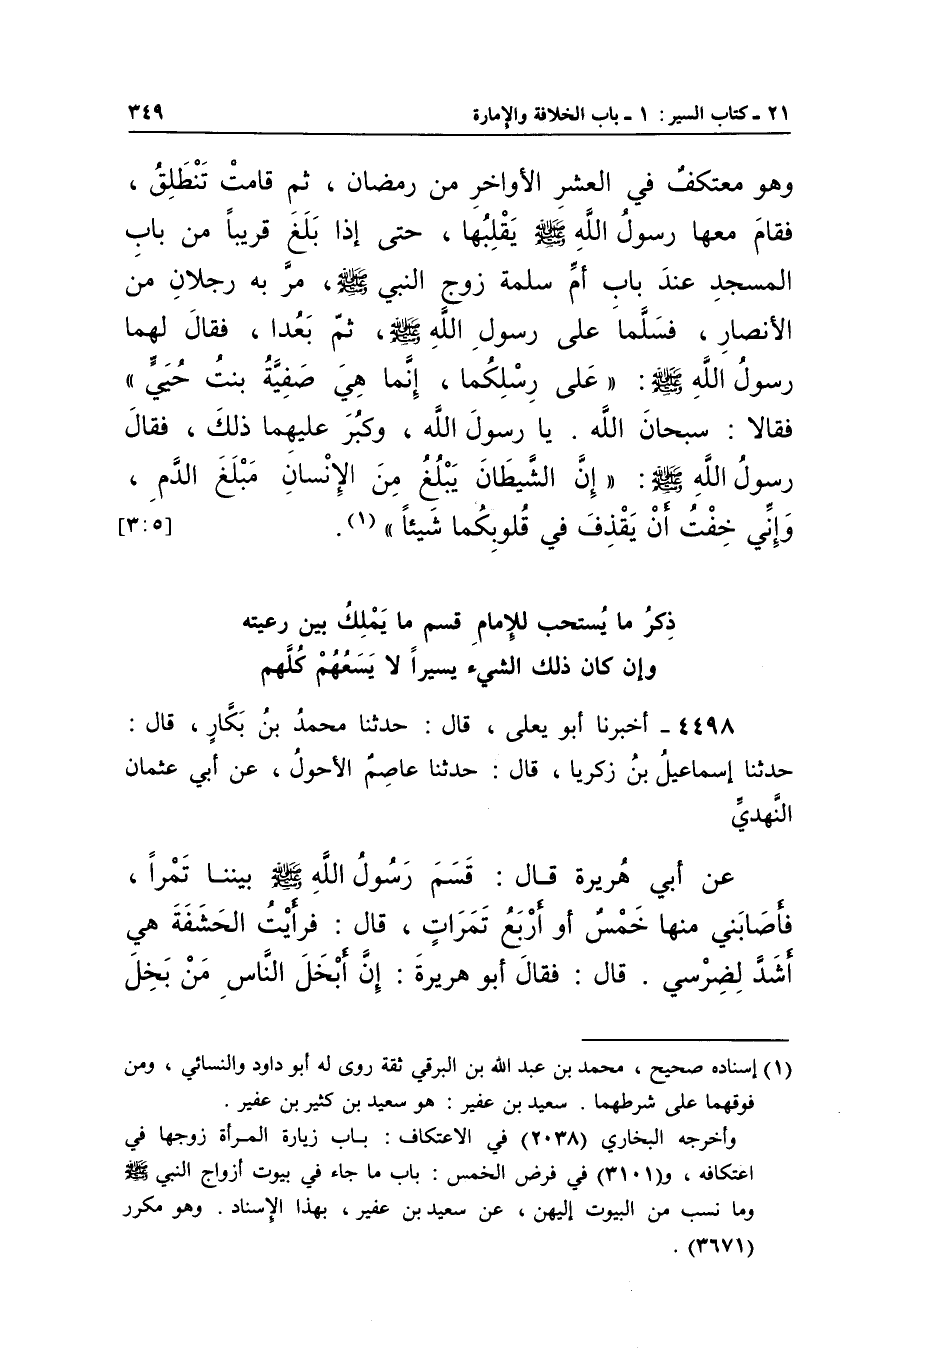 ٢١ ـ كتاب السير : ١ ـ باب الخلافة والإمارة ٣٤٩
وهو معتكفٌ في العشرِ الأواخرِ من رمضان ، ثم قامتْ تَنْطَلِقُ ،
فقامَ معها رسولُ اللَّهِ ﷺ يَقْلِبُها ، حتى إذا بَلَغَ قريباً من بابِ
المسجدِ عندَ بابِ أمِّ سلمة زوج النبي ﷺ، مرَّ به رجلانِ من
الأنصارِ ، فسَلَّما على رسولِ اللَّهِ ﷺ، ثمّ بَعُدا ، فقالَ لهما
رسولُ اللَّهِ ﷺ : « عَلى رِسْلِكُما ، إنَّما هِيَ صَفِيَّةُ بنتُ حُيَيٍّ »
فقالا : سبحانَ اللَّه . يا رسولَ اللَّه ، وكبُرَ عليهما ذلكَ ، فقالَ
رسولُ اللَّهِ ﷺ : « إنَّ الشَّيطَانَ يَبْلُغُ مِنَ الإنْسانِ مَبْلَغَ الدَّمِ ،
وَإنِّي خِفْتُ أَنْ يَقْذِفَ في قُلوبِكُما شَيئاً » (١). [٣:٥]
ذِكرُ ما يُستحب للإمامِ قسم ما يَمْلِكُ بين رعيته
وإن كان ذلك الشيء يسيراً لا يَسَعُهُمْ كُلَّهم
٤٤٩٨ ـ أخبرنا أبو يعلى ، قال : حدثنا محمدُ بنُ بَكَّارٍ ، قال :
حدثنا إسماعيلُ بنُ زكريا ، قال : حدثنا عاصِمٌ الأحولُ ، عن أبي عثمان
النَّهديِّ
عن أبي هُريرة قال : قَسَمَ رَسُولُ اللَّهِ ﷺ بيننا تَمْراً ،
فأَصَابَني منها خَمْسٌ أو أرْبَعُ تَمَرَاتٍ ، قال : فرأَيْتُ الحَشَفَةَ هي
أَشَدَّ لِضِرْسي . قال : فقالَ أبو هريرةَ : إنَّ أَبْخَلَ النَّاسِ مَنْ بَخِلَ
(١) إسناده صحيح ، محمد بن عبد الله بن البرقي ثقة روى له أبو داود والنسائي ، ومن
فوقهما على شرطهما . سعيد بن عفير : هو سعيد بن كثير بن عفير .
وأخرجه البخاري (٢٠٣٨) في الاعتكاف : باب زيارة المرأة زوجها في
اعتكافه ، و(٣١٠١) في فرض الخمس : باب ما جاء في بيوت أزواج النبي ﷺ
وما نسب من البيوت إليهن ، عن سعيد بن عفير ، بهذا الإسناد . وهو مكرر
(٣٦٧١) .